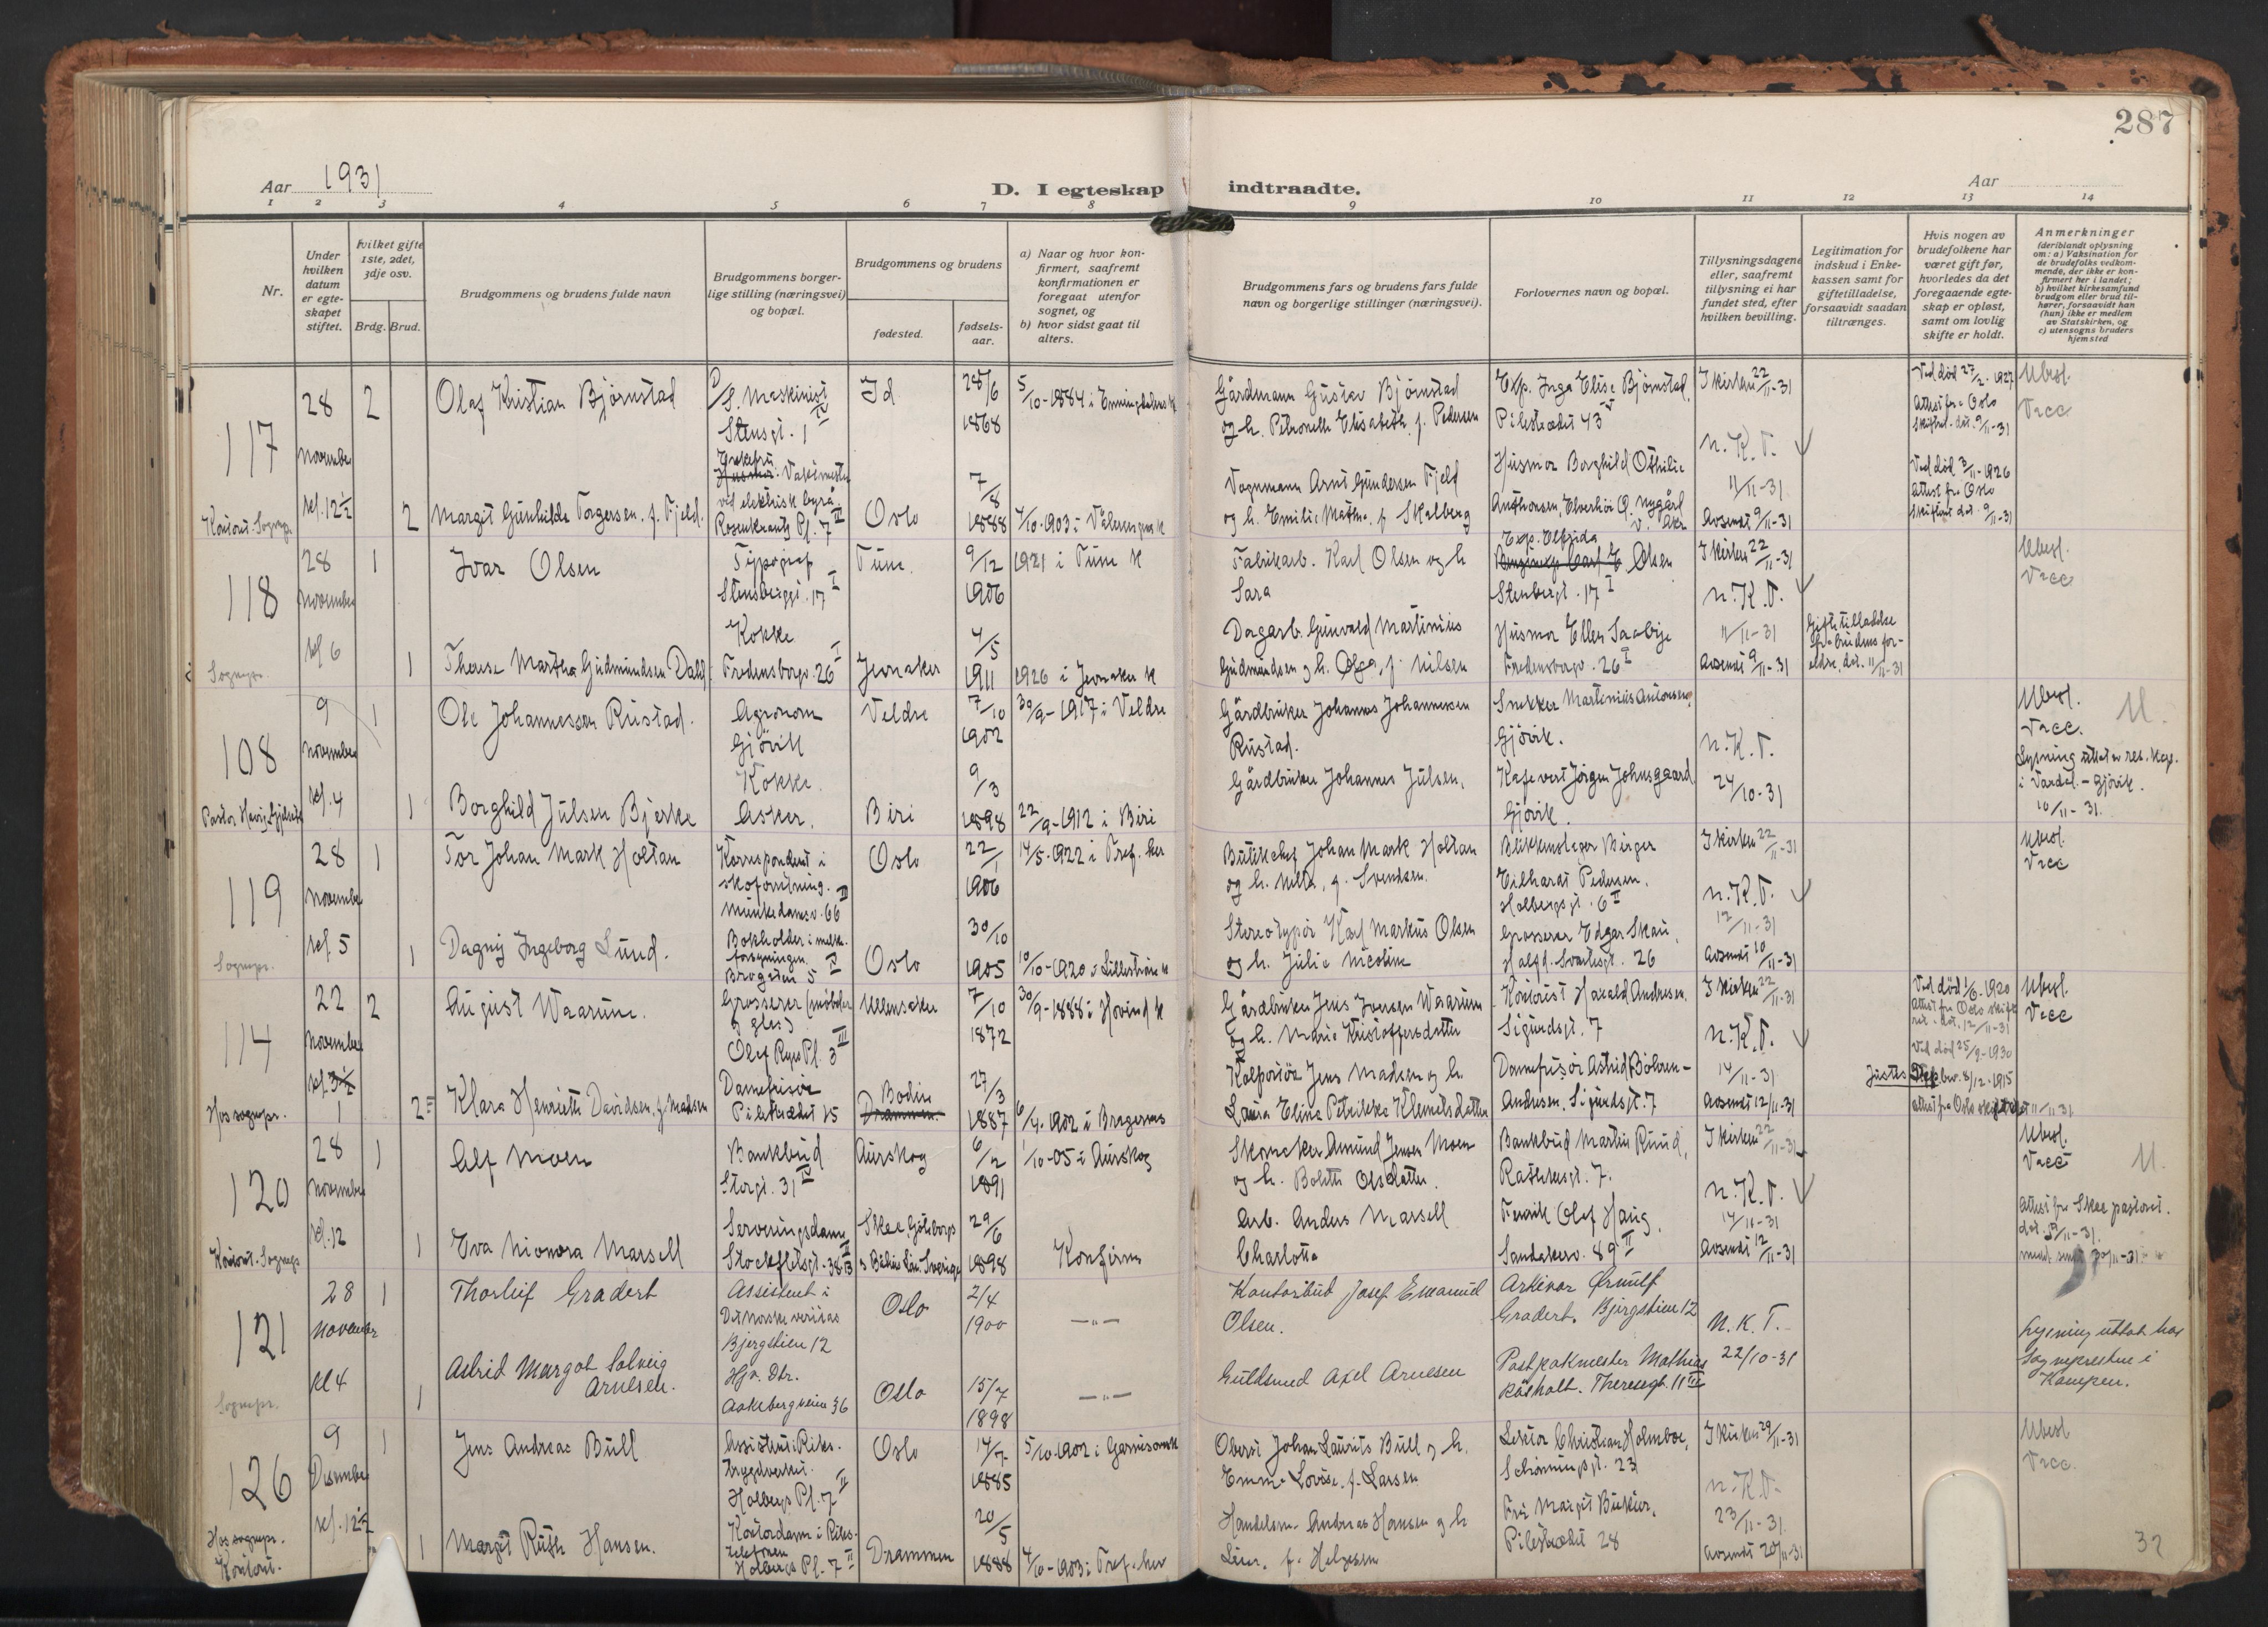 287
Aar 1931
D. I egteskap indtraadte.
Aar
1 2 3 4 5 6 7 8 9 10 11 12 13 14
Nr.
Under hvilken datum er egteskapet stiftet.
Hvilket gifte 1ste, 2det, 3dje osv.
Brdg. Brud.
Brudgommens og brudens fulde navn
Brudgommens borgerlige stilling (næringsvei) og bopæl.
Brudgommens og brudens
fødested.
fødsels-aar.
a) Naar og hvor konfirmert, saafremt konfirmationen er foregaat utenfor sognet, og
b) hvor sidst gaat til alters.
Brudgommens fars og brudens fars fulde navn og borgerlige stillinger (næringsvei).
Forlovernes navn og bopæl.
Tillysningsdagene eller, saafremt tillysning ei har fundet sted, efter hvilken bevilling.
Legitimation for indskud i Enkekassen samt for giftetilladelse, forsaavidt saadan tiltrænges.
Hvis nogen av brudefolkene har været gift før, hvorledes da det foregaaende egteskap er opløst, samt om lovlig skifte er holdt.
Anmerkninger (deriblandt oplysning om: a) Vaksination for de brudefolks vedkommende, der ikke er konfirmert her i landet; b) hvilket kirkesamfund brudgom eller brud tilhører, forsaavidt han (hun) ikke er medlem av Statskirken, og c) utensogns bruders hjemsted
117
28 November kl. 12½
Kontoret. Sognepr.
2 Olaf Kristian Bjørnstad
Maskinist Stensgt. 1 IV
Id
28/6 1868
5/10-1884 i
Gårdmann Gustav Bjørnstad og h. Petronelle Elisabeth f. Pedersen
Exp. Inga Elise Bjørnstad, Pilestredet 43 V
I kirken 22/11-31
N.K.T.
11/11-31
Avsendt 9/11-31
Ved død 27/2-1927 Attest fra Oslo Skifteret dat. 9/11-31
Ubesl. Vacc
2 Margit Gunhilde Torgersen f. Fjeld.
Enkefru
ved elektrisk byrå Rosenkrantz Pl. 7 II
Oslo
7/8 1888
4/10-1903 i Vålerengens k
Vognmann Arnt Gundersen Fjeld og h. Emilie Mathea f. Skalberg
Husmor Borghild Othilie
Ved død 3/11-1926 Attest fra Oslo Skifteret dat. 9/11-31
118
28 November kl 6
Sognepr.
1 Ivar Olsen
Typograf Stensberggt. 17 I
Tune.
9/12 1906
1921 i Tune k
Fabrikarb. Karl Olsen og h Sara
Exp. Elfrida Olsen Stensbergt. 17 I
I kirken 22/11-31
N.K.T.
11/11-31
Avsendt 9/11-31
Ubesl. Vacc
1 Therese Martha Gudmundsen Dahl
Kokke Fredensborgv. 26 I
Jevnaker
4/5 1911
1926 i Jevnaker k
Dagarb. Gunvald Martinius Gudmundsen og h. Olga, f. Nilsen
Husmor Ellen Saabye Fredensborgv. 26 I
Giftetilladelse fra brudens foreldre, dat. 11/11-31
108
9 November kl. 4
1 Ole Johannessen Rustad.
Agronom Gjøvik
Veldre
7/10 1902
30/9-1917 i Veldre
Gårdbruker Johannes Johannesen Rustad.
Snekker Martinius Antonsen, Gjøvik.
N.K.T.
24/10-31
Ubesl. Vacc. U.
Lysning uttatt av res. kap. i Vardal-Gjøvik. 10/11-31.
1 Borghild Julsen Bjerke
Kokke. Asker.
Biri
9/3 1898
22/9-1912 i Biri
Gårdbruker Johannes Julsen.
Kafevert Jørgen Johnsgaard. Gjøvik.
119
28 November kl. 5
Sognepr.
1 Tor Johan Mark Holtan
Korrespondent i skoforretning. Munkedamsv. 66 III
Oslo
22/1 1906
14/5-1922 i Tref. ker
Butikchef Johan Mark Holtan og h. f. Svendsen.
Blikkenslager Birger Eilhardt Pedersen. Holbergs gt. 6 II
I kirken 22/11-31
N.K.T.
12/11-31
Avsendt 10/11-31
Ubesl. Vacc
1 Dagny Ingeborg Lund.
Bokholder i melkeforsyningen. Brogaten 5 IV
Oslo
30/10 1905
10/10-1920 i Lillestrøm k
Stereotypør Karl Markus Olsen og h. Julie Nicoline
Grosserer Edgar Skau, Halfd. Svartesgt. 26
114
22 November kl 3½ 1
Hos sognepr.
2 August Waarum.
Grosserer (møbler og glas) Olaf Ryes Pl. 3 III
Ullensaker
7/10 1872
30/9-1888 i Hovind k
Gårdbruker Jens Iversen Waarum og h. Marie Kristoffersdatter
Kontorist Harald Andresen. Sigurdsgt. 7
I kirken 22/11-31
N.K.T.
14/11-31
Avsendt 12/11-31
Ved død 1/6-1920 Attest fra Oslo skifteret i dat. 12/11-31
Ubesl. Vacc
2 Klara Henriette Davidsen, f. Madsen
Damefrisør Pilestredet 15
Bodin Drammen
27/3 1887
6/4-1902 i Bragernes
Kolportør Jens Madsen og h. Laura Eline Petrikke Klemetsdatter
Damefrisør Astrid Bohren-Andresen. Sigurdsgt. 7
Ved død 25/9-1930
8/12-1915
Attest fra Oslo skifteret 11/11 31.
120
28 November kl. 12
Kontoret. Sognepr
1 Alf Moen
Bankbud Storgt. 31 IV
Aurskog
6/2 1891
1/10-05 i Aurskog
Skomaker Amund Jensen Moen og h. Bolette Olsdatter.
Bankbud Martin Ruud, Rathkesgt. 7.
I kirken 22/11-31
N.K.T.
14/11-31
Avsendt 12/11-31
Ubesl. Vacc U.
1 Eva Nionora Marsell
Serveringsdame Stockfletsgt. 38
Skee, Göteborgs o Bohus Län. Sverige
29/6 1898
Konfirm
Arb. Anders Marsell Charlotta
Fenrik Olaf Haug. Sandakerv. 89 II
Attest fra Skee pastorat.
121
28 November kl 4
Sognepr.
1 Thorleif Gradert
Assistent i Det norske veritas Bjergstien 12
Oslo
2/4 1900
—"—
Kontorbud Josef Emanuel Olsen.
Arkivar Ørnulf Gradert. Bjergstien 12
N.K.T.
22/10-31
Lysning uttat hos Sognepresten i Kampen.
1 Astrid Margot Solveig Arnesen.
Hjv. Dtr. Aakebergveien 36
Oslo
15/7 1898
—"—
Guldsmed Axel Arnesen
Postpakmester Mathias Råholt. Theresesgt. 11 III
126
9 Desember kl. 12½
Hos sognepr. Kontoret.
1 Jens Andreas Bull
Assistent i Rikstrygdverket. Holbergs Pl. 7 II
Oslo
14/7 1885
5/10-1902 i Garnisonsk
Oberst Johan Laurits Bull og h. Emma Lovise, f. Larsen
Lektor Christian Holmboe, Schønningsgt. 23
I kirken 29/11-31
N.K.T.
23/11-31.
Avsendt 20/11-31
Ubesl Vacc.
1 Margit Ruth Hansen.
Kontordame i Rikstelefonen Holbergs Pl. 7 II
Drammen
20/5 1888
4/10-1903 i Tref. ker
Handelsm. Andreas Hansen og h f. Helgesen
Fru Margit Pilestredet 28
32